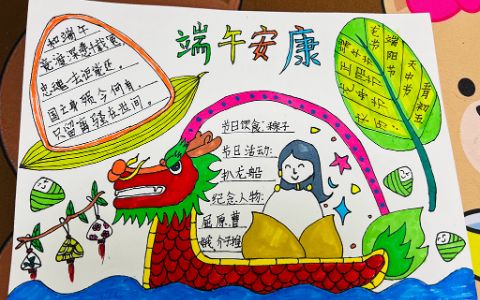 端午安康
和端午
竞渡深悲千载冤,
忠魂一去讵能还。
国亡身殒今何有,
只留离骚在世间。
节日饮食:粽子
节日活动:
扒龙船
纪念人物:
屈原、曹
娥、介子推
端阳节
天中节
端午节
正阳节